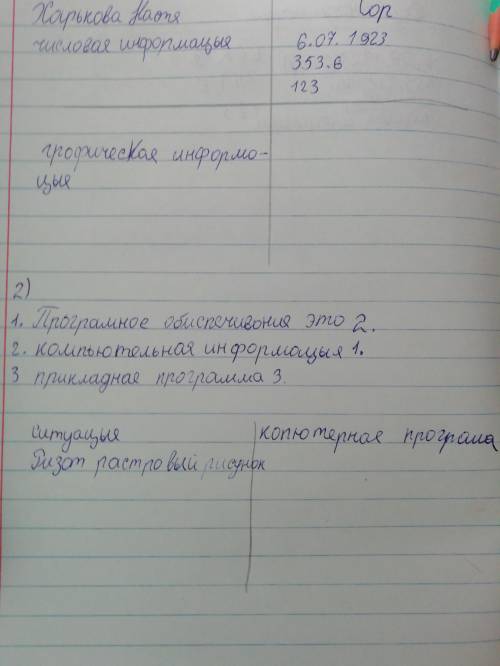 Харькова Настя Сор
числовая информацыя 6.07.1923
353.6
123
грофическая информо-
цыя
2)
1. Програмное обиспечивония это 2.
2. компьютельная информацыя 1.
3 прикладная программа 3.
ситуацыя копютерная програма
Ризат растровый рисунок